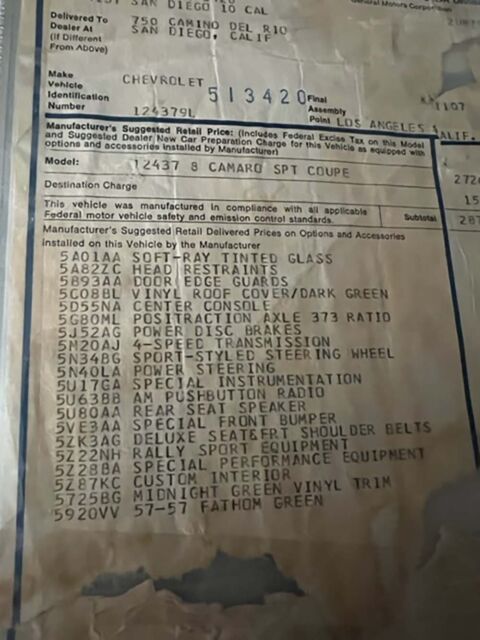 SAN DIEGO 10 CAL
General Motors Corporation
Delivered To 750 CAMINO DEL RIO
Dealer At SAN DIEGO, CALIF
(If Different
From Above)
Make CHEVROLET
Vehicle
Identification 124379L 513420
Number
Final
Assembly
Point LOS ANGELES CALIF.
1107
Manufacturer's Suggested Retail Price: (Includes Federal Excise Tax on this Model
and Suggested Dealer New Car Preparation Charge for this Vehicle as equipped with
options and accessories installed by Manufacturer)
Model: 12437 8 CAMARO SPT COUPE
Destination Charge
This vehicle was manufactured in compliance with all applicable
Federal motor vehicle safety and emission control standards. Subtotal
Manufacturer's Suggested Retail Delivered Prices on Options and Accessories
installed on this Vehicle by the Manufacturer
5A01AA SOFT-RAY TINTED GLASS
5A82ZC HEAD RESTRAINTS
5B93AA DOOR EDGE GUARDS
5C08BL VINYL ROOF COVER/DARK GREEN
5D55NA CENTER CONSOLE
5G80ML POSITRACTION AXLE 373 RATIO
5J52AG POWER DISC BRAKES
5M20AJ 4-SPEED TRANSMISSION
5N34BG SPORT-STYLED STEERING WHEEL
5N40LA POWER STEERING
5U17GA SPECIAL INSTRUMENTATION
5U63BB AM PUSHBUTTON RADIO
5U80AA REAR SEAT SPEAKER
5VE3AA SPECIAL FRONT BUMPER
5ZK3AG DELUXE SEAT&FRT SHOULDER BELTS
5Z22NH RALLY SPORT EQUIPMENT
5Z28BA SPECIAL PERFORMANCE EQUIPMENT
5Z87KC CUSTOM INTERIOR
5725BG MIDNIGHT GREEN VINYL TRIM
5920VV 57-57 FATHOM GREEN